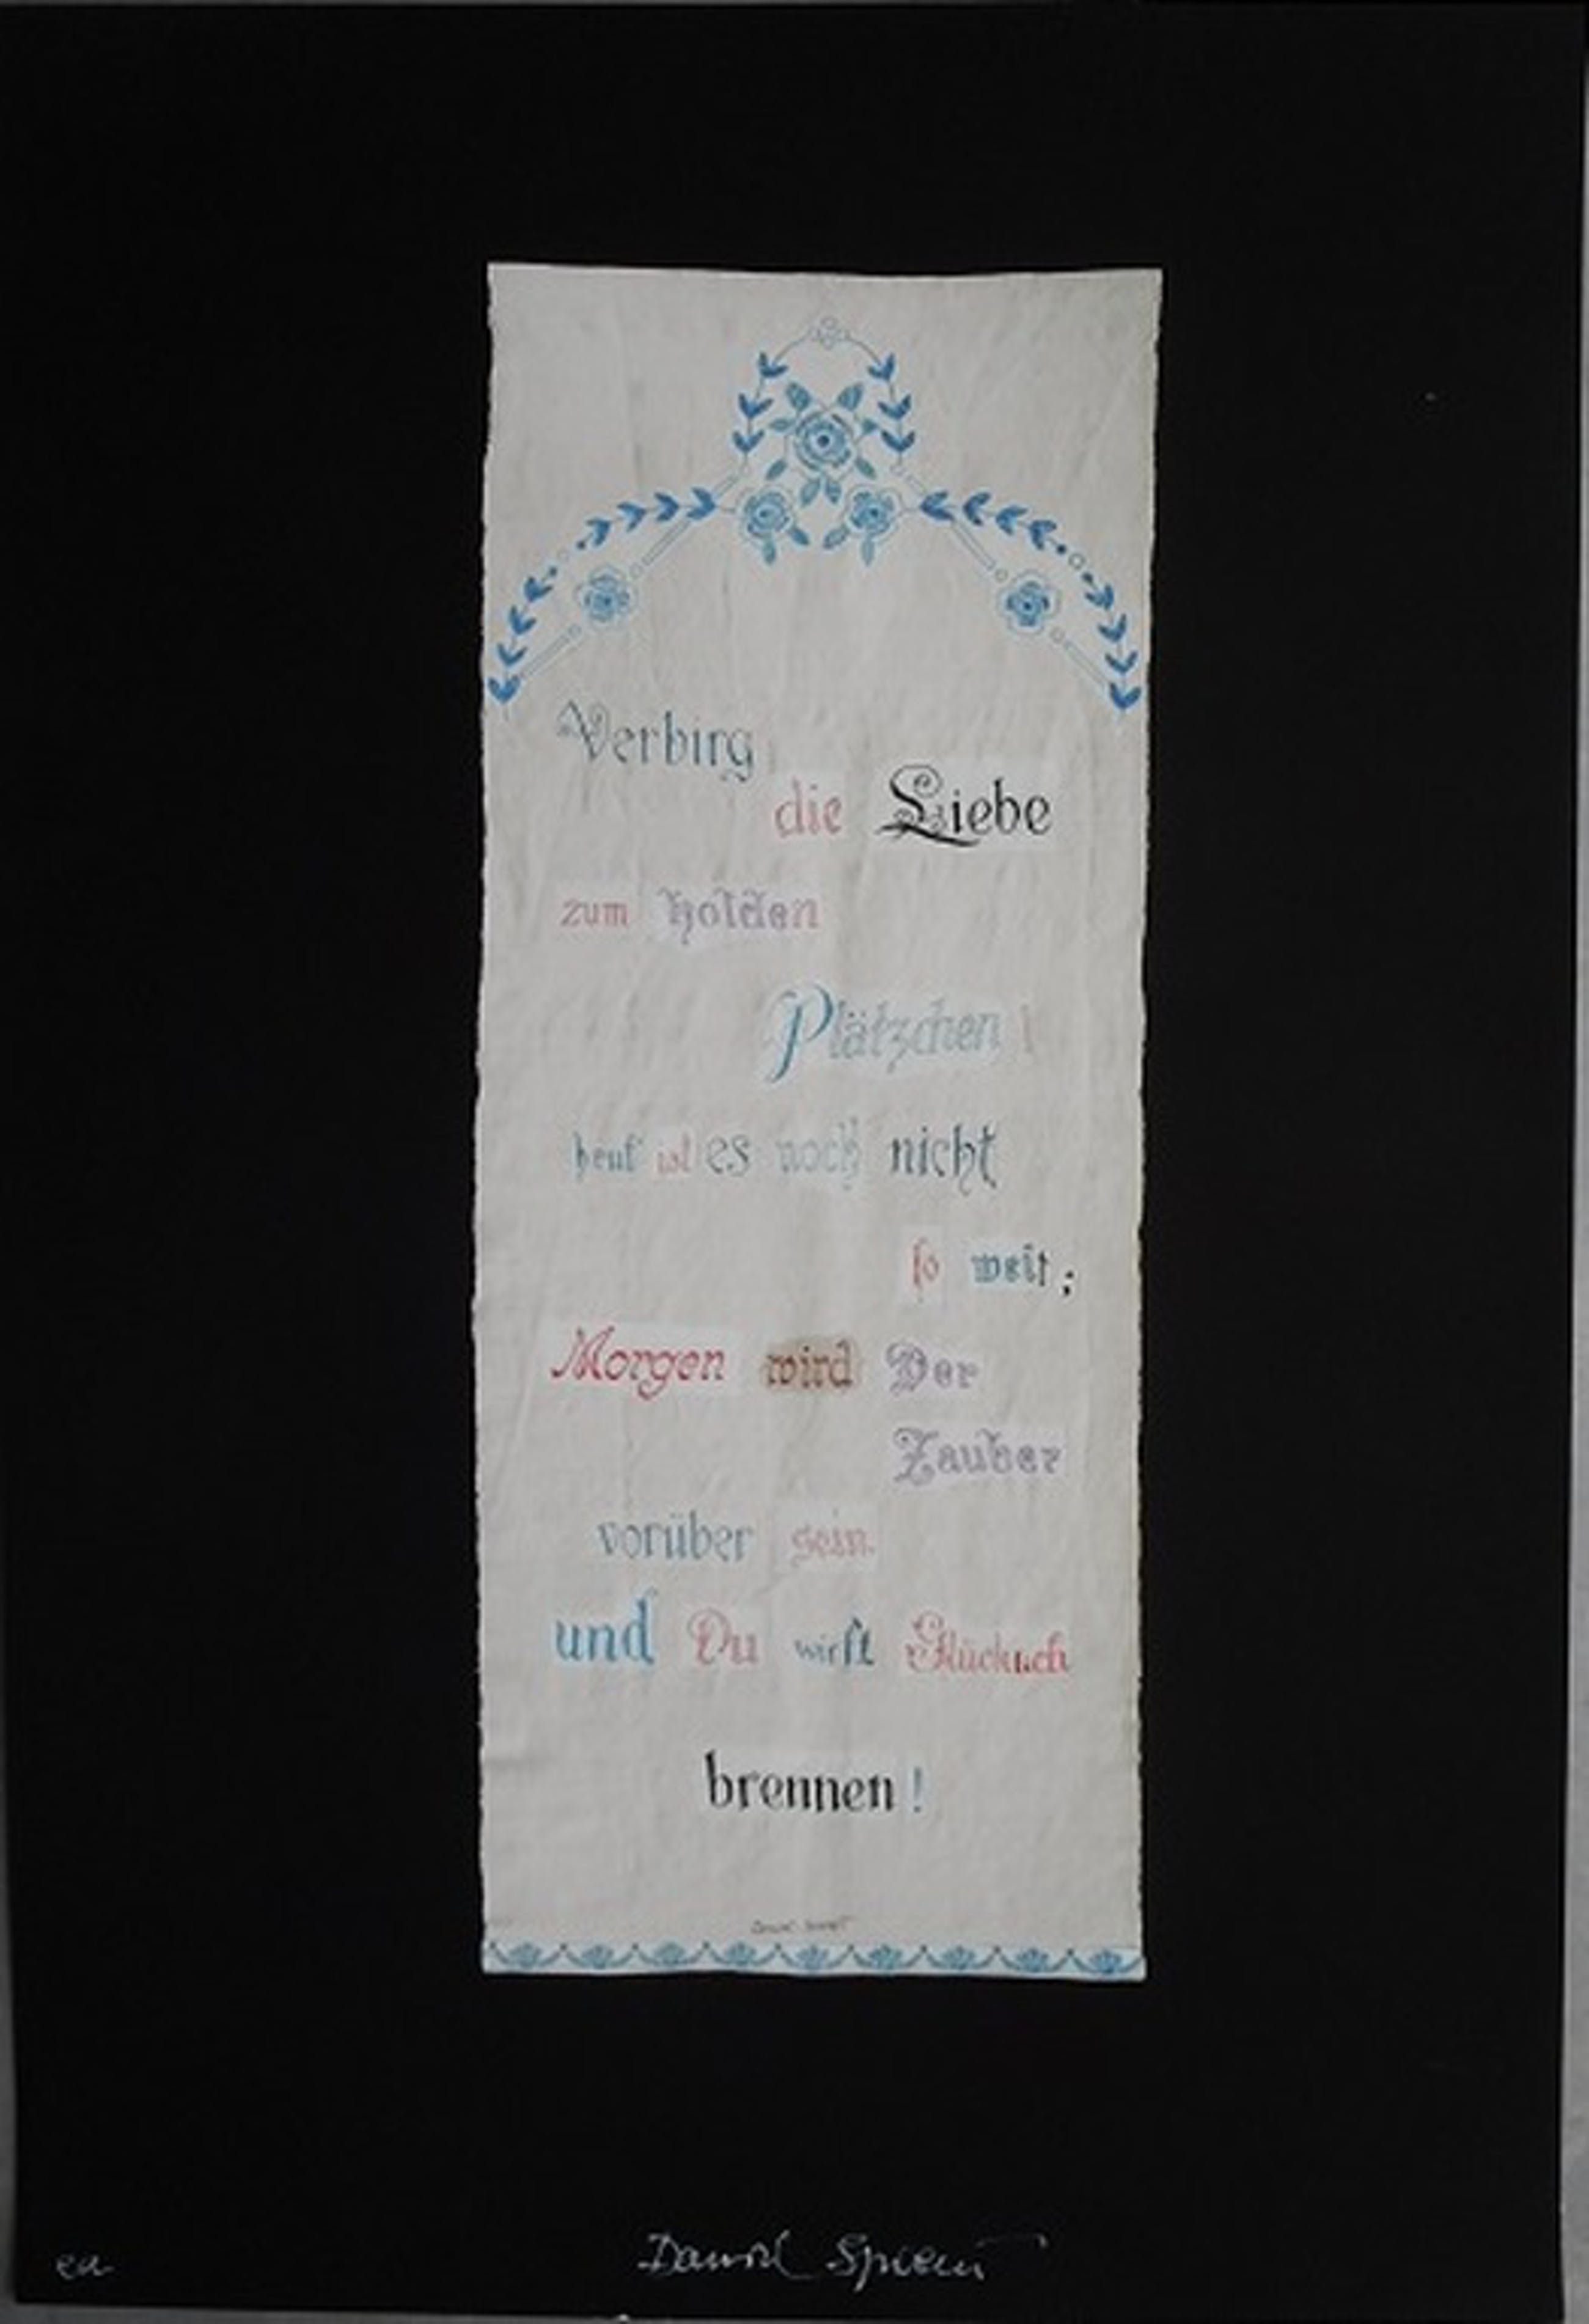 Verbirg
die Liebe
zum holden
Plätzchen !
heut ist es noch nicht
so weit ;
Morgen wird Der
Zauber
vorüber sein.
und Du wirst Glücklich
brennen !
ea Daniel Spoerri